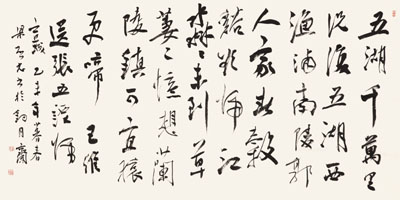 五湖千萬里
況復五湖西
漁浦南陵郭
人家春穀
谿欲歸江
淼淼未到草
萋萋憶想蘭
陵鎮可宜猿
更啼 王維
送張五諲歸
宣城 乙未年暮春
於鈎月齋